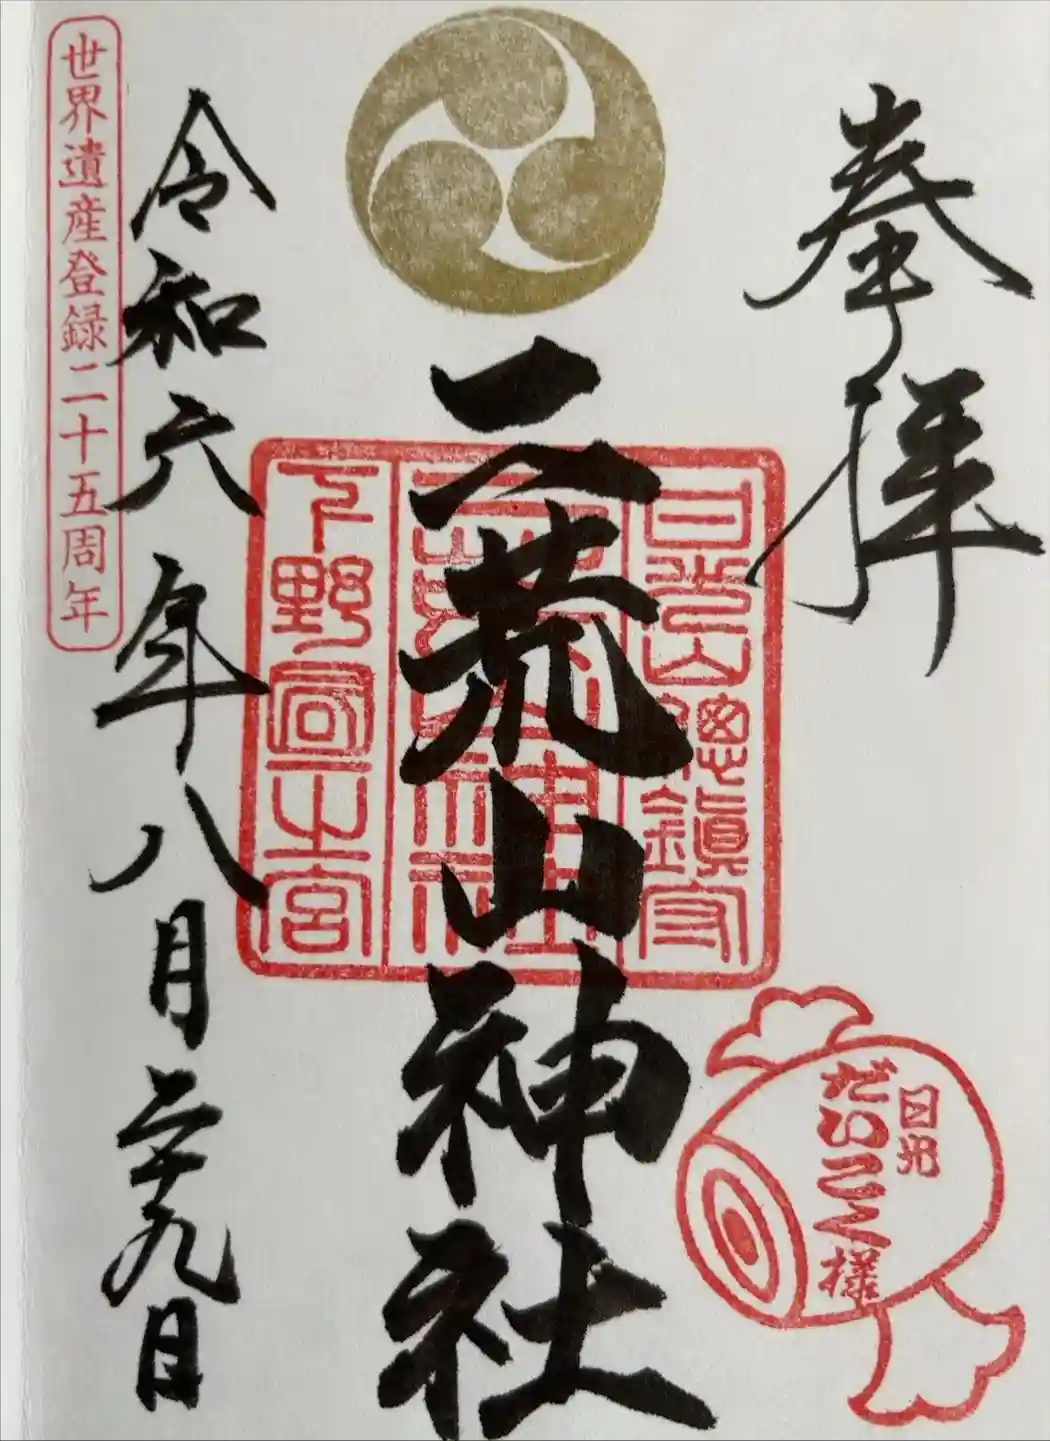 奉拝
日光山總鎮守
二荒山神社
下野國一之宮
日光
だいこく様
令和六年八月二十九日
世界遺産登録二十五周年